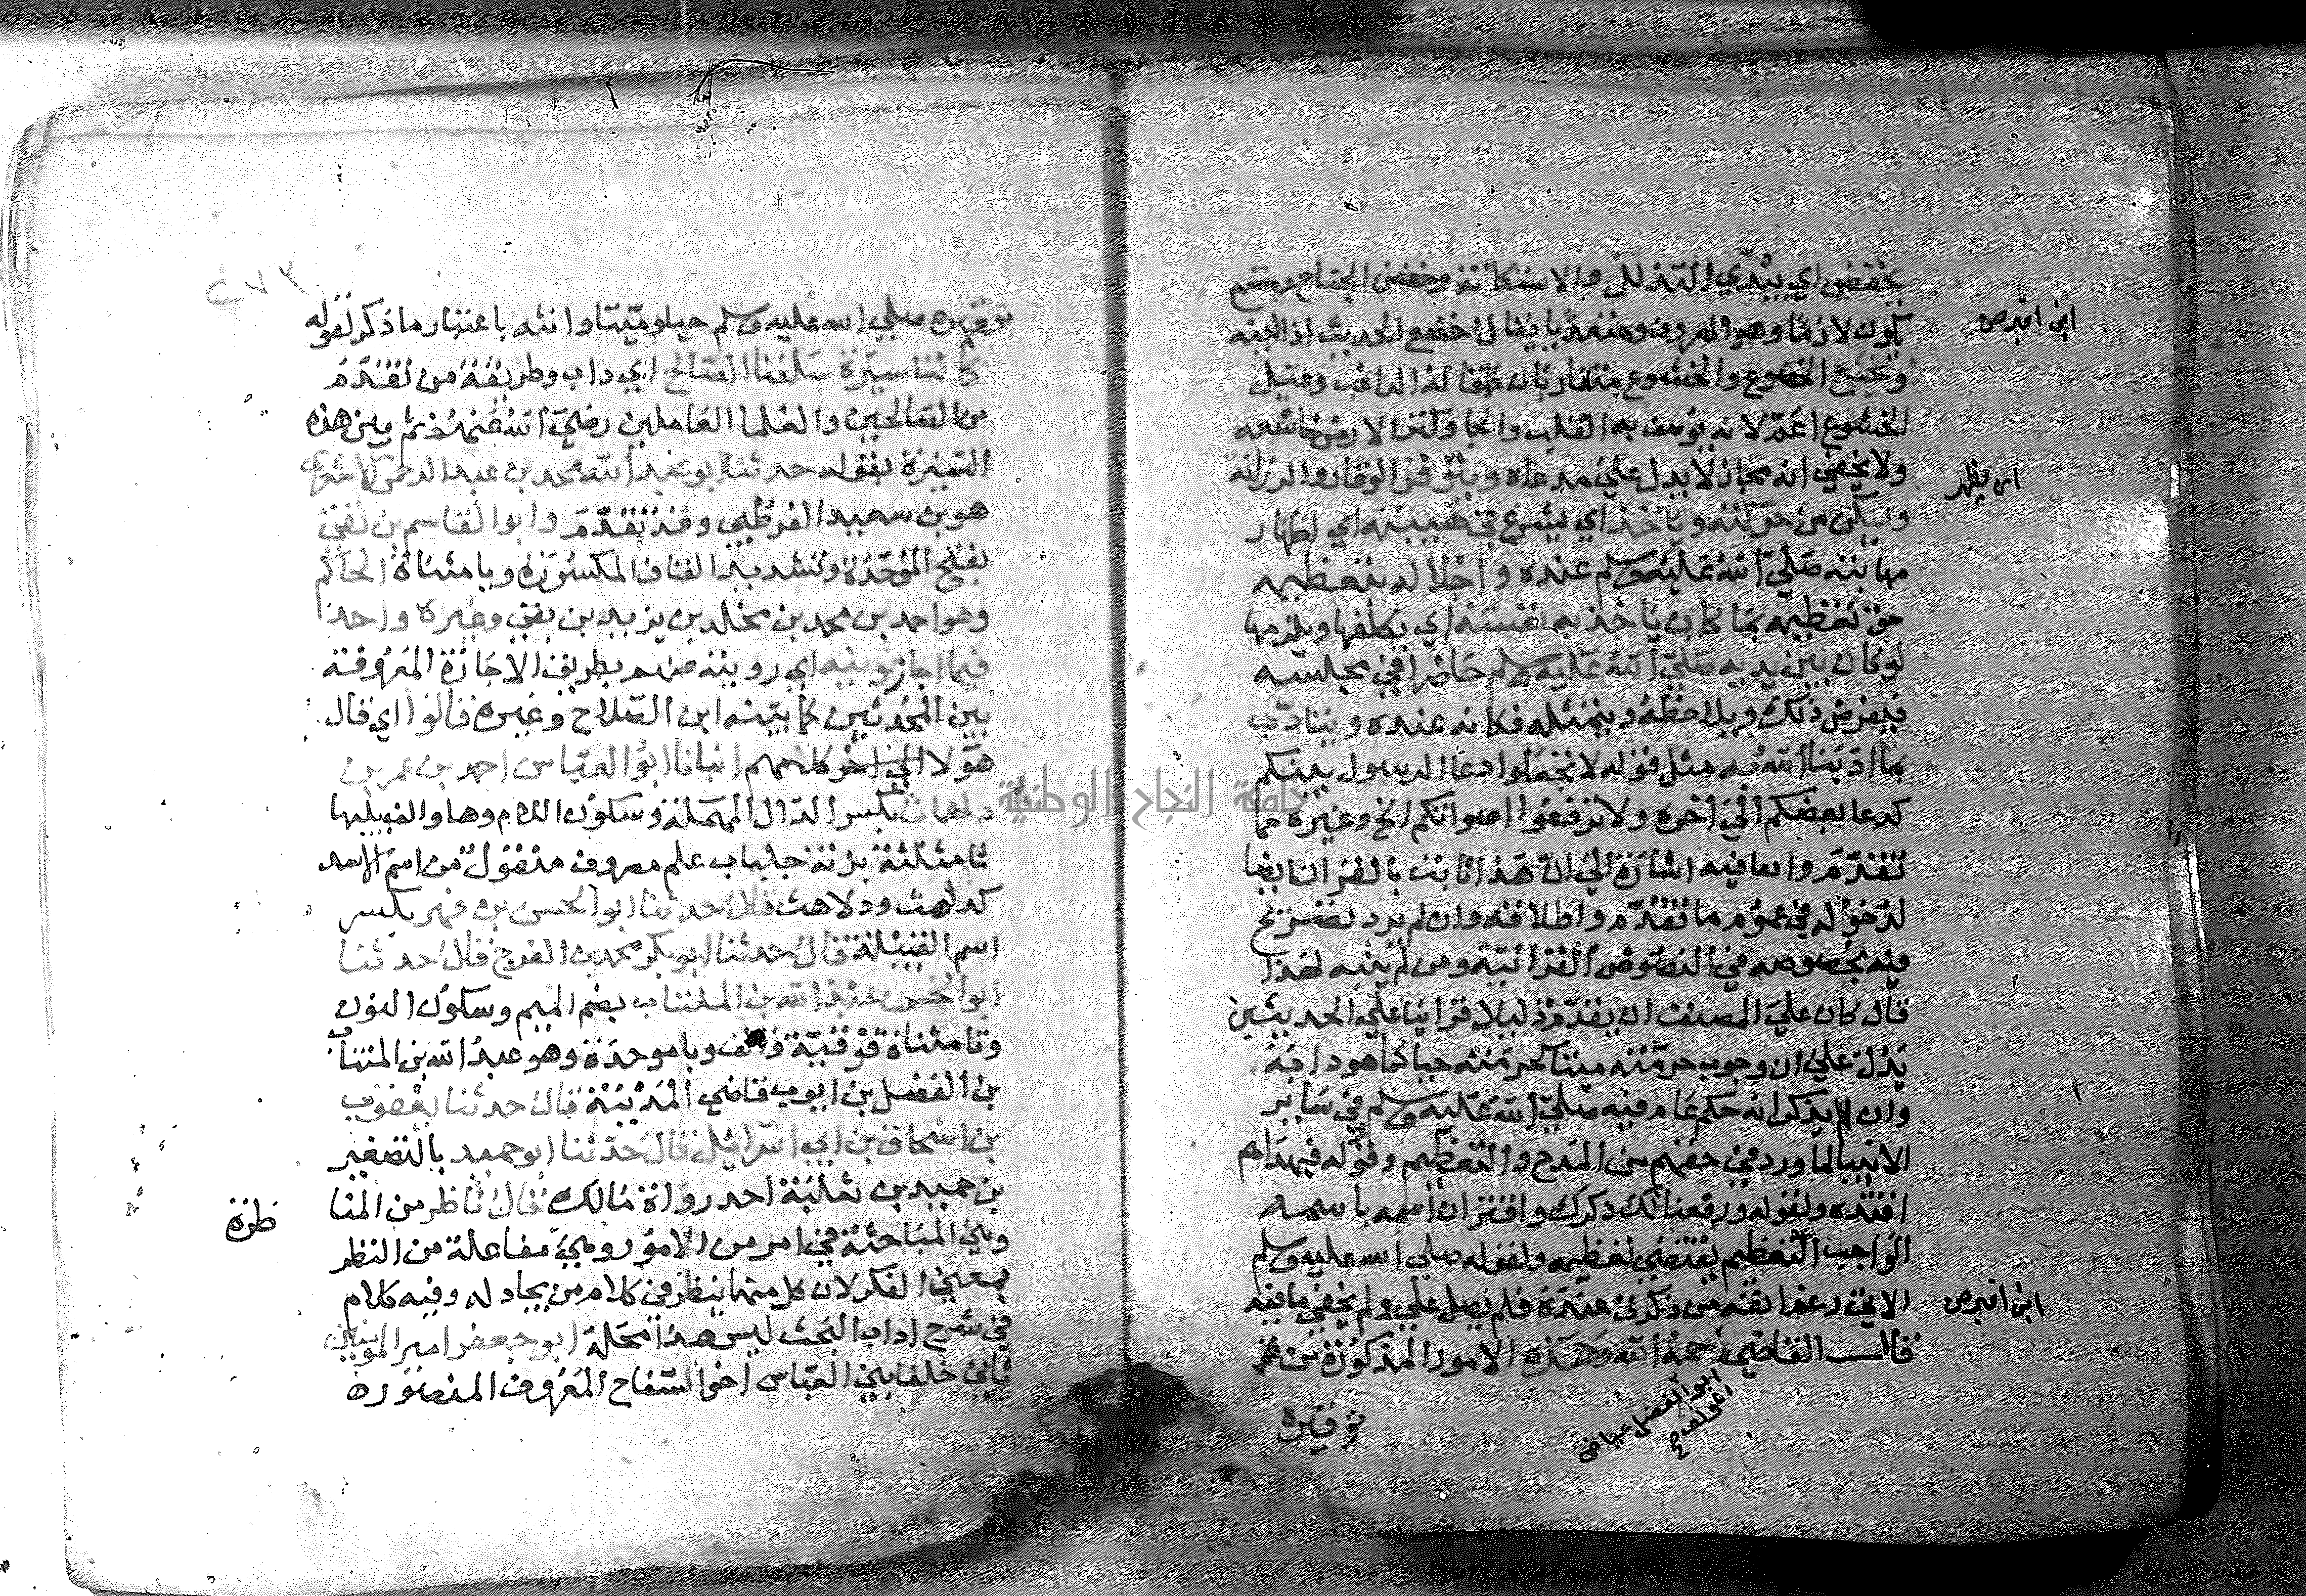 يخفض اي يبدي التذلل والاستكانة وخفض الجناح وخضع
يكون لازما وهو المعروف ومتعديا يقال خضع الحديث اذا لينه
ابن اقبرص
ويخشع الخضوع والخشوع متقاربان كما قاله الراغب وقيل
الخشوع اعم لانه يوصف به القلب والجا وكثر الارض خاشعه
ولا يخفي انه مجاز لا يدل علي مدعاه ويتوقر الوقار والرزانة
ويسكن من حركته وياخذ اي يشرع في هيبته اي اظهار
مهابته صلي الله عليه وسلم عنده واجلاله بتعظيمه
حق تعظيمه بما كان ياخذ به نفسه اي يكلفها ويلزمها
لو كان بين يديه صلي الله عليه وسلم حاضرا في مجلسه
فيفرض ذلك ويلاحظه ويتمثله فكانه عنده ويتادب
بما ادبنا الله به مثل قوله لا تجعلوا دعا الرسول بينكم
كدعا بعضكم الي اخره ولا ترفعوا اصواتكم الخ وغيره مما
تقدم وانما فيه اشارة الي ان هذا ثابت بالقران ايضا
لدخوله في عموم ما تقدم واطلاقه وان لم يرد تصريح
فيه بخصوصه في النصوص القرانية ومن لم ينبه لهذا
قال كان علي المصنف ان يقدم دليلا قرانيا علي الحديثين
يدل علي ان وجوب حرمته ميتا كحرمته حيا كما هو دابه
وان لم يذكر انه حكم عام فيه صلي الله عليه وسلم في ساير
الانبيا لما ورد في حقهم من المدح والتعظيم وقوله فبهداهم
اقتده ولقوله ورفعنا لك ذكرك واقتران اسمه باسمه
الواجب التعظيم يقتضي تعظيمه ولقوله صلي الله عليه وسلم
الاتي رغم انف من ذكرت عنده فلم يصل علي ولم يخفي ما فيه
ابن اقبرص
قال القاضي رحمه الله وهذه الامور المذكورة من
ابو الفضل عياض
توقيره
٢٧٣
توقيره صلي الله عليه وسلم حيا وميتا وانثه باعتبار ما ذكر لقوله
كانت سيرة سلفنا الصالح اي داب وطريقة من تقدم
من الصالحين والعلما العاملين رضي الله عنهم ثم بين هذه
السيرة بقوله حدثنا ابو عبد الله محمد بن عبد الرحمن الاشعري
هو بن سعيد القرطبي وقد تقدم وابو القاسم بن بقي
بفتح الموحدة وتشديد القاف المكسورة ويا مثناة الحاكم
وهو احمد بن محمد بن مخلد بن يزيد بن بقي وغيره واحد
فيما اجازونيه اي رويته عنهم بطريق الاجازة المعروفة
بين المحدثين كما بينه ابن الصلاح وغيره قالوا اي قال
هولا الي اخر كلامهم انبانا ابو العباس احمد بن عمر بن
دلهاث بكسر الدال المهملة وسكون اللام وها والف يليها
ثا مثلثة بزنة جلباب علم معروف منقول من اسم الاسد
كدلهث ودلاهث قال حدثنا ابو الحسن بن فهر بكسر
اسم القبيلة قال حدثنا ابو بكر محمد بن الفرج قال حدثنا
ابو الحسن عبد الله بن المنتاب بضم الميم وسكون النون
وتا مثناة فوقية والف وبا موحدة وهو عبد الله بن المنتاب
بن الفضل بن ايوب قاضي المدينة قال حدثنا يعقوب
بن اسحاق بن ابي اسرائيل قال حدثنا ابو حميد بالتصغير
بن حميد بن ثعلبة احد رواة مالك قال ناظر من المنا
ظرة
وهي المباحثة في امر من الامور وهي مفاعلة من النظر
بمعني الفكر لان كل منهما ينظر في كلام من يجادله وفيه كلام
في شرح اداب البحث ليس هذا محله ابو جعفر امير المومنين
ثاني خلفا بني العباس اخو السفاح المعروف المنصوره
جامعة النجاح الوطنية